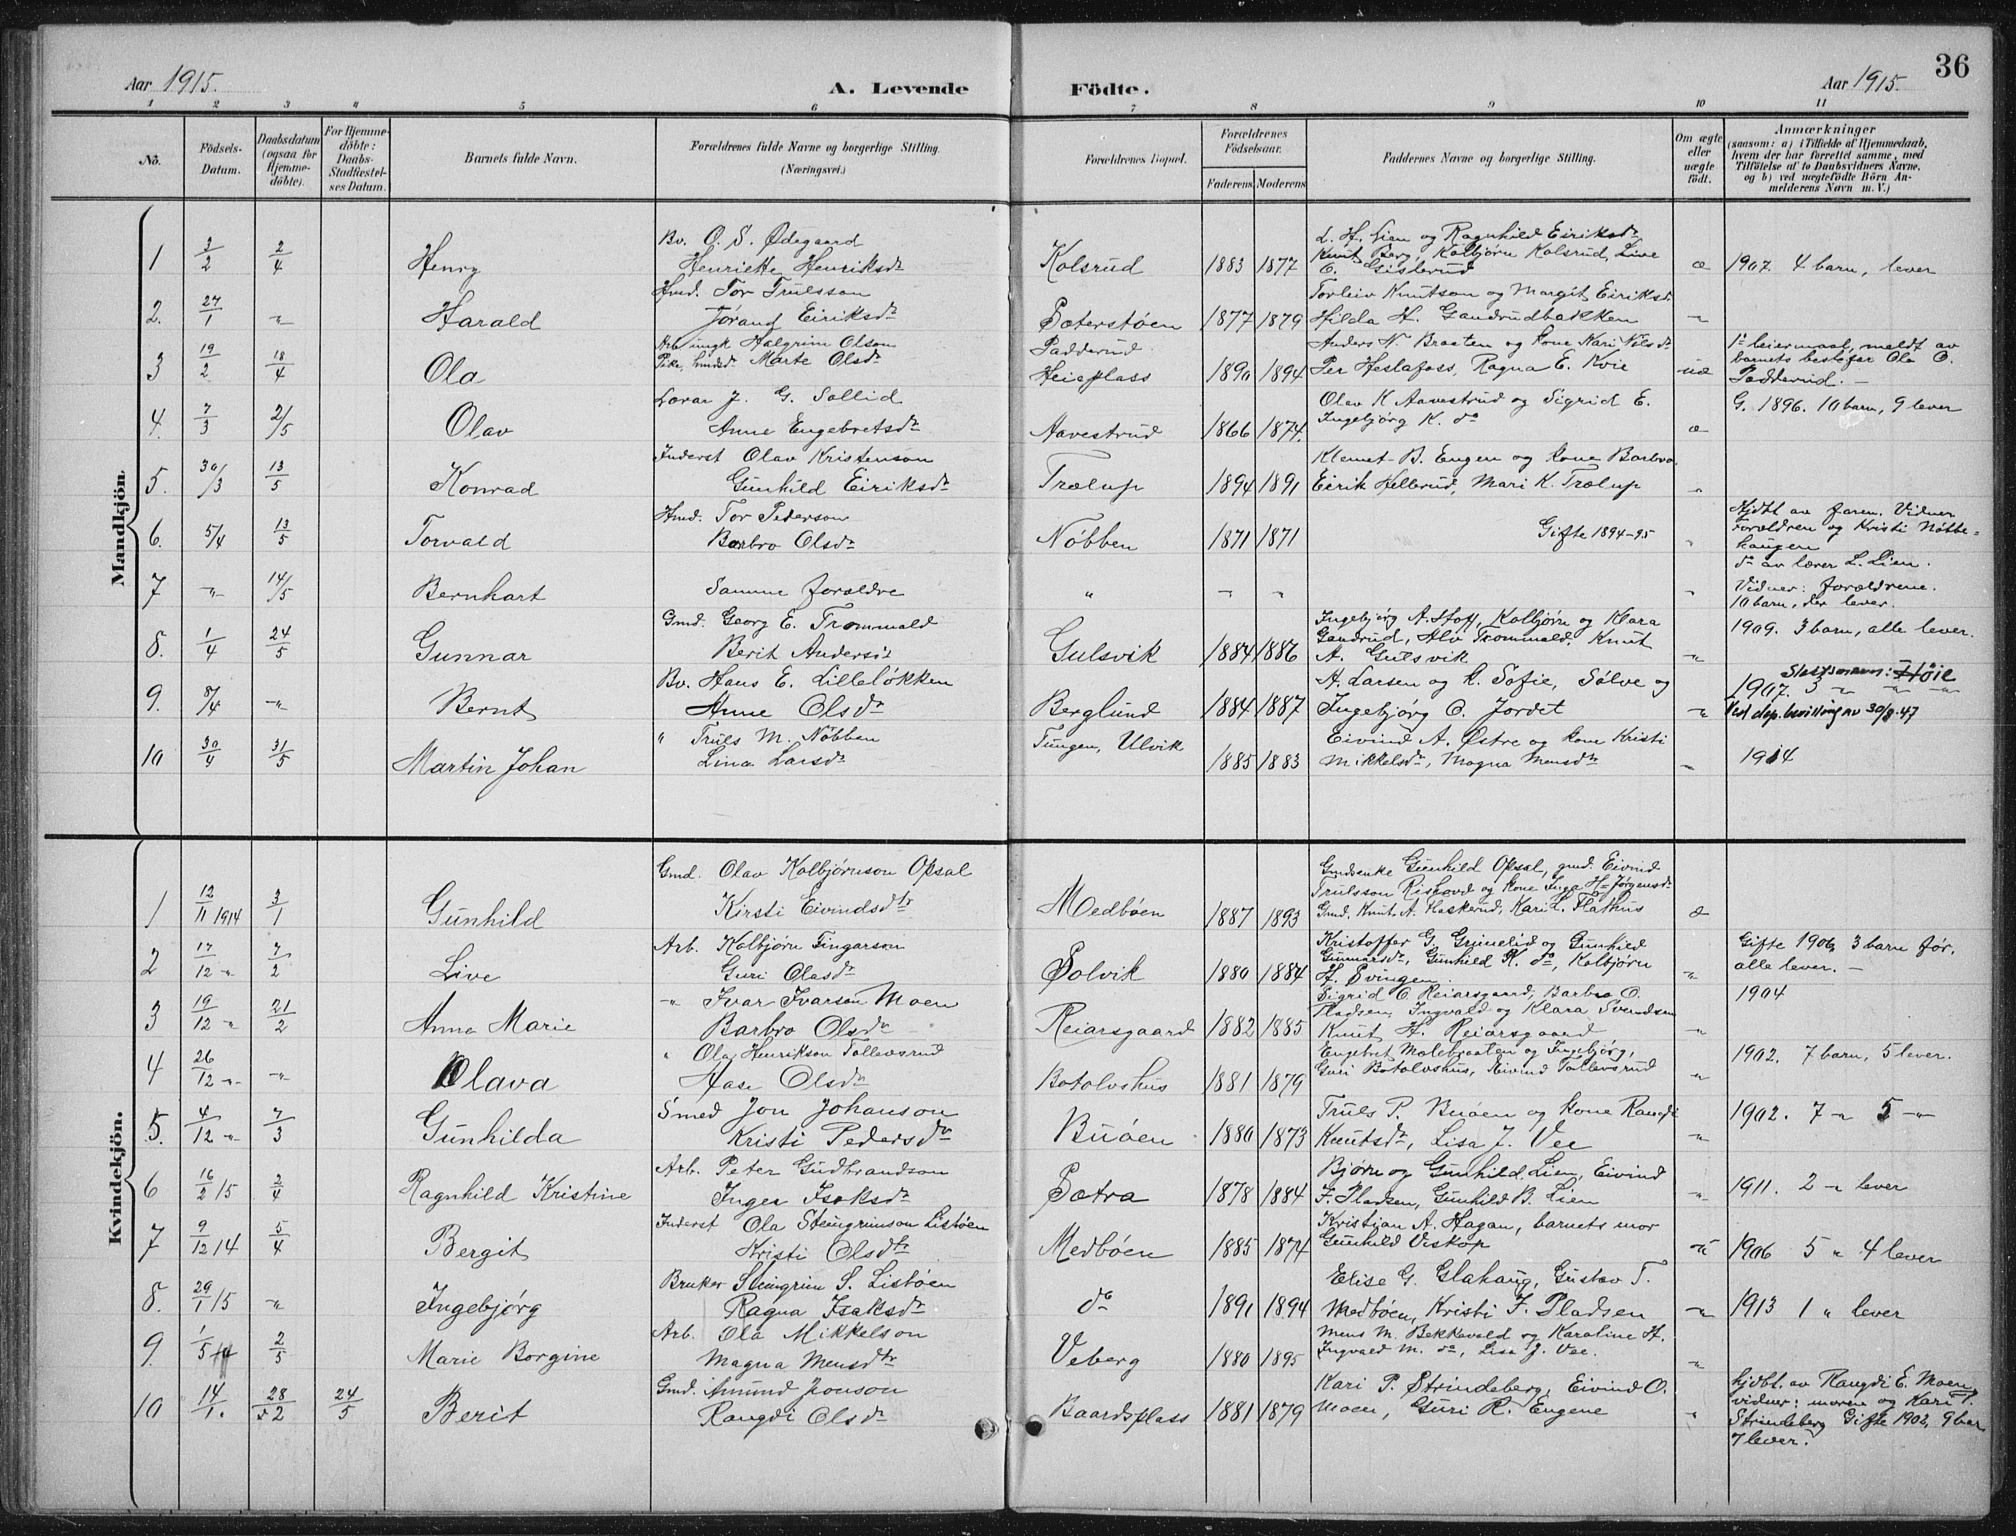 36
Aar 1915.
A. Levende Födte.
Aar 1915.
1 2 3 4 5 6 7 8 9 10 11
No.
Födsels-Datum.
Daabsdatum (ogsaa for Hjemmedöbte).
For Hjemmedöbte: Daabs-Stadfæstelses Datum.
Barnets fulde Navn.
Forældrenes fulde Navne og borgerlige Stilling. (Næringsvei.)
Forældrenes Bopæl.
Forældrenes Födselsaar.
Faderens Moderens
Faddernes Navne og borgerlige Stilling.
Om ægte eller uægte födt.
Anmærkninger
(saasom: a) i Tilfælde af Hjemmedaab, hvem der har forrettet samme, med Tilföielse af to Daabsvidners Navne, og b) ved uægtefödte Börn Anmelderens Navn m. V.)
Mandkjön.
1 3/2 2/4 Henry
Bv. O. S. Ødegaard
Henriette Henriksdr
Kolsrud 1883 1877
L. H. Lien og Ragnhild Eiriksdr
Knut Berg, Kolbjørn Kolsrud, Live
E. Gislerud
æ 1907. 4 barn, lever
2. 27/1 " Harald
Hmd. Tor Trulsson
Jørand Eiriksdr
Sæterstøen 1877 1879
Torleiv Knutson og Margit Eiriksdr
Hilda H. Gandrudbakken
"
3 19/2 18/4 Ola
Arb. ungk Halgrim Olson
Marte Olsdr
Padderud
Heieplass 1890 1894
Anders N. Braaten og kone Kari Nilsdr
Per Heslafoss, Ragna E. Kvie
uæ
1ste leiermaal, meldt av
barnets bestefar Ola O.
Padderud. —
4. 7/3 2/5 Olav
Lærar J. G. Sollid
Anne Engebretsdr
Aavestrud 1866 1874.
Olav K Aavestrud og Sigrid E.
Ingebjørg K. do
æ
G. 1896. 10 barn, 9 lever
5. 30/3 13/5 Konrad
Inderst Olav Kristenson
Gunhild Eiriksdr
Trælup 1894 1891
Klemet B. Engen og kone Barbro
Eirik Hellerud, Mari K. Trælup
"
6. 5/4 13/5 Torvald
Hmd. Tor Pederson
Barbro Olsdr
Nöbben 1871 1871
Gifte 1894-95
"
Hjdbt av faren. Vidner
Forældren og Kristi Nöbbe-
haugen
7 " 14/5 Bernhart
Samme forældre
" " "
"
do av lærer L. Lien.
Vidner: forældrene.
10 barn, der lever.
8. 1/4 24/5 Gunnar
Gmd. Georg E. Trommald
Berit Andersdr
Gulsvik 1884 1886
Ingebjørg A. Hoff, Kolbjørn og Klara
Gandrud, Alv Trommald, Knut
A. Gulsvik
"
1909. 3 barn, alle lever.
9. 8/4 " Bernt
Bv. Hans E. Lilleløkken
Anne Olsdr
Berglund 1884 1887
A. Larsen og K. Sofie, Sølve og
Ingebjørg O. Jordet
"
Slektsnavn: Høie
1907. 3 " " "
Ved dep. bevilling av 30/8-47
10 30/4 31/5 Martin Johan
" Truls M. Nöbben
Lina Larsdr
Tungen, Ulvik 1885 1883
Eivind A. Østre og kone Kristi
Mikkelsdr, Magna Mensdtr
"
1914
Kvindekjön.
1 12/11 1914 3/1 Gunhild
Gmd. Olav Kolbjørnson Opsal
Kirsti Eivindsdtr
Medböen 1887 1893
Gmdsenke Gunhild Opsal, gmd. Eivind
Trulsson Rishovd og kone Inga H. Jørgensdr
Gmd. Knut A. Haskerud, Kari L. Flathus
æ
2 17/12 " 7/2 Live
Arb. Kolbjørn Fingarson
Guri Olasdr
Solvik 1880 1884
Kristoffer G. Grimelid og Gunhild
Gunnarsdr, Gunhild K. do, Kolbjørn
H. Svingen
"
Gifte 1906, 3 barn før,
alle lever. —
3 19/12 " 21/2 Anna Marie
" Ivar Ivarson Moen
Barbro Olsdr
Reiarsgaard 1882 1885
Sigrid O. Reiarsgaard, Barbro O.
Pladsen, Ingvald og Klara Svendsen
Knut H. Reiarsgaard
"
1904
4 26/12 " " Olava
" Ola Henrikson Tollevsrud
Aase Olsdr
Botolvshus 1881 1879
Engebret Molebraaten og Ingebjørg,
Guri Botolvshus, Eivind Tollevsrud
"
1902. 7 barn, 5 lever.
5. 4/12 " 7/3 Gunhilda
Smed Jon Johanson
Kristi Pedersdr
Buöen 1880 1873
Truls P. Buöen og kone Rangdi
Knutsdr, Lisa J. Vee
"
1902. 7 " 5 "
6 16/2 15 2/4 Ragnhild Kristine
Arb. Peter Gudbrandson
Inger Isaksdr
Sætra 1878 1884
Bjørn og Gunhild Lien, Eivind
F. Pladsen, Gunhild B. Lien
"
1911. 2 " lever
7 9/12 14 5/4 Bergit
Inderst Ola Steingrimson Lisböen
Kristi Olsdtr
Medböen 1885 1874
Kristian A. Hagan, barnets mor
Gunhild Veskop
"
1906 5 " 4 lever
8. 29/1 15 " Ingebjörg
Bruker Steingrim S. Lisböen
Ragna Isaksdr
do 1891 1894
Elise G. Glahaug, Gustav T.
Medböen, Kristi F. Pladsen
"
1913 1 " lever
9. 1/5 2/5 Marie Borgine
Arb. Ola Mikkelson
Magna Mensdtr
Veberg 1880 1895
Mens M. Bekkevold og Karoline H.
Ingvald M. do, Lisa J. Vee.
"
10 14/1. 28/2 24/5 Berit
Gmd. Amund Jonson
Rangdi Olsdr
Baardsplass 1881 1879
Kari P. Strindeberg, Eivind O.
Moen, Guri R. Engene
"
hjdbt. av Rangdi E. Moen,
vidner: moren og Kari P.
Strindeberg Gifte 1902, 9 bar
7 lever.